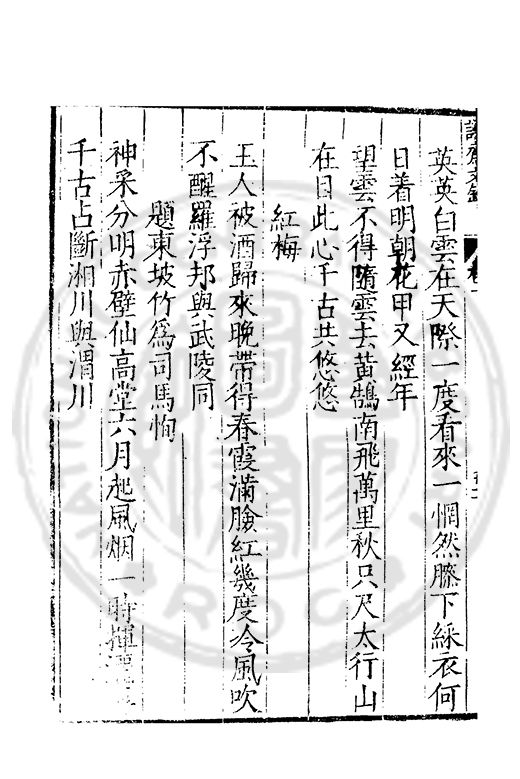 英英白雲在天際一度看來一惘然膝下綵衣何
日着明朝花甲又經年
望雲不得隨雲去黃鵠南飛萬里秋只尺太行山
在目此心千古共悠悠
紅梅
玉人被酒歸來晚帶得春霞滿臉紅幾度冷風吹
不醒羅浮邦與武陵同
題東坡竹為司馬恂
神采分明赤壁仙高堂六月起風烟一時揮
千古占斷湘川與渭川